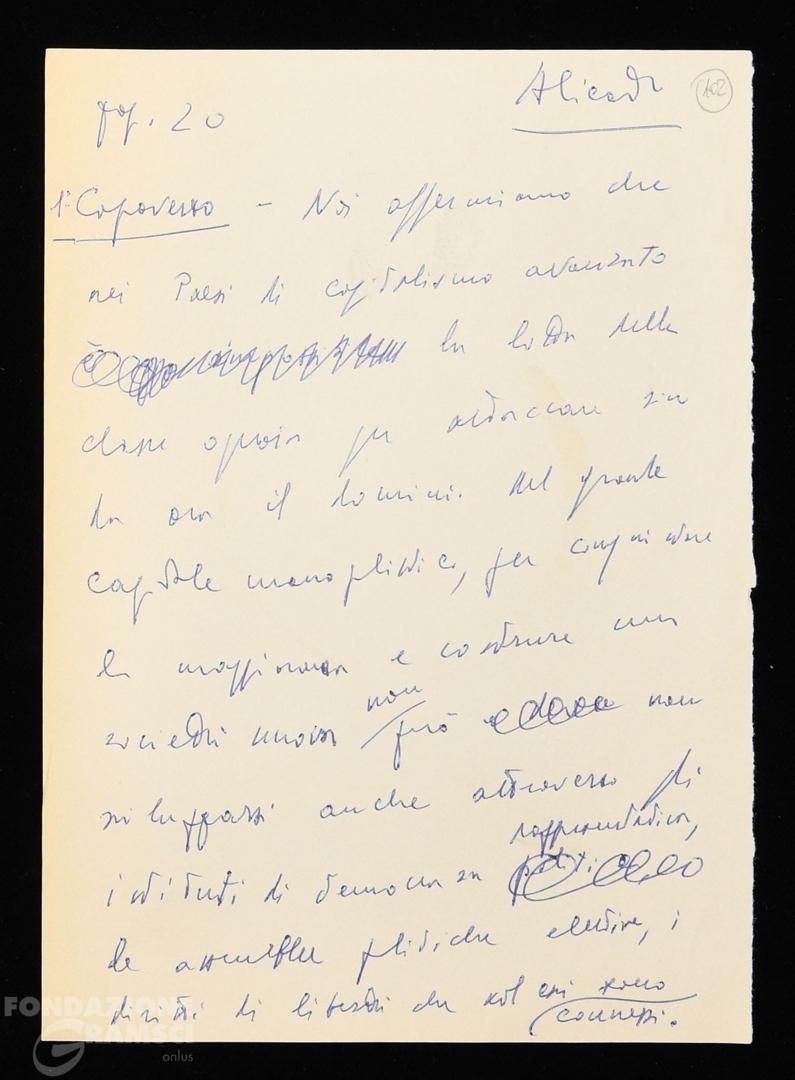 Alicata
102
pag. 20
1° Capoverso – Noi affermiamo che
nei Paesi di capitalismo avanzato
la lotta della
classe operaia per attaccare sin
da ora il dominio del grande
capitale monopolistico, per conquistare
la maggioranza e costruire una
società nuova non può non
svilupparsi anche attraverso gli
istituti di democrazia rappresentativa,
le assemblee politiche elettive, i
diritti di libertà che ad essi sono
connessi.
FONDAZIONE
GRAMSCI
onlus